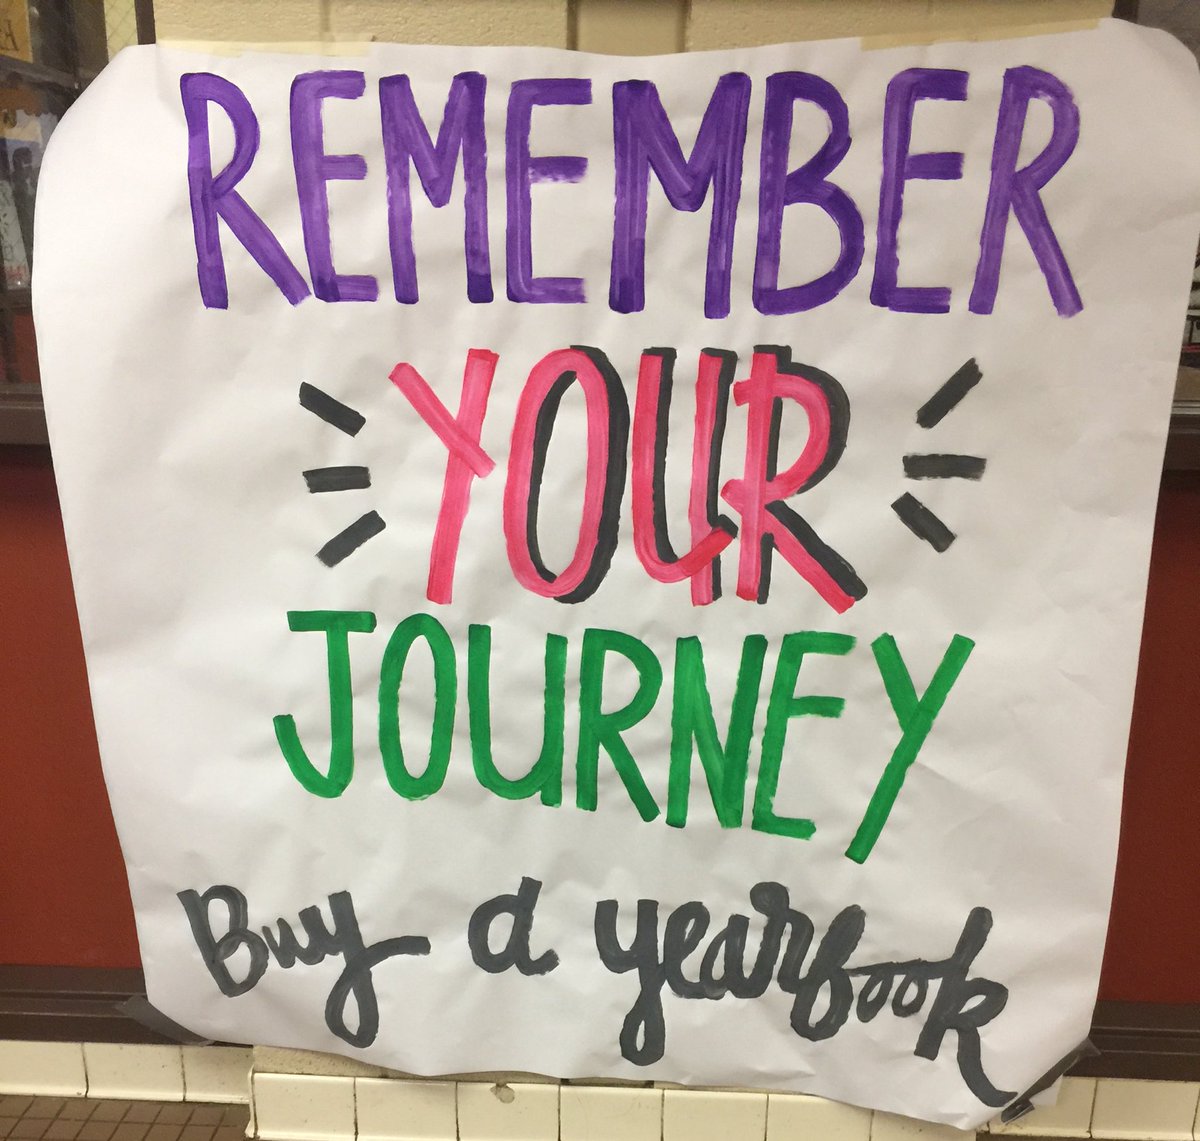 REMEMBER
YOUR
JOURNEY
Buy a yearbook